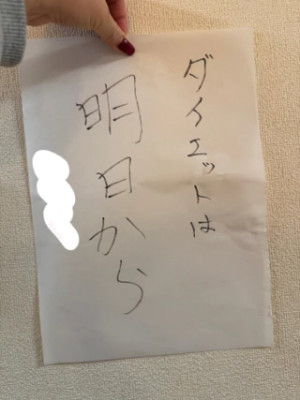 ダイエットは
明日から